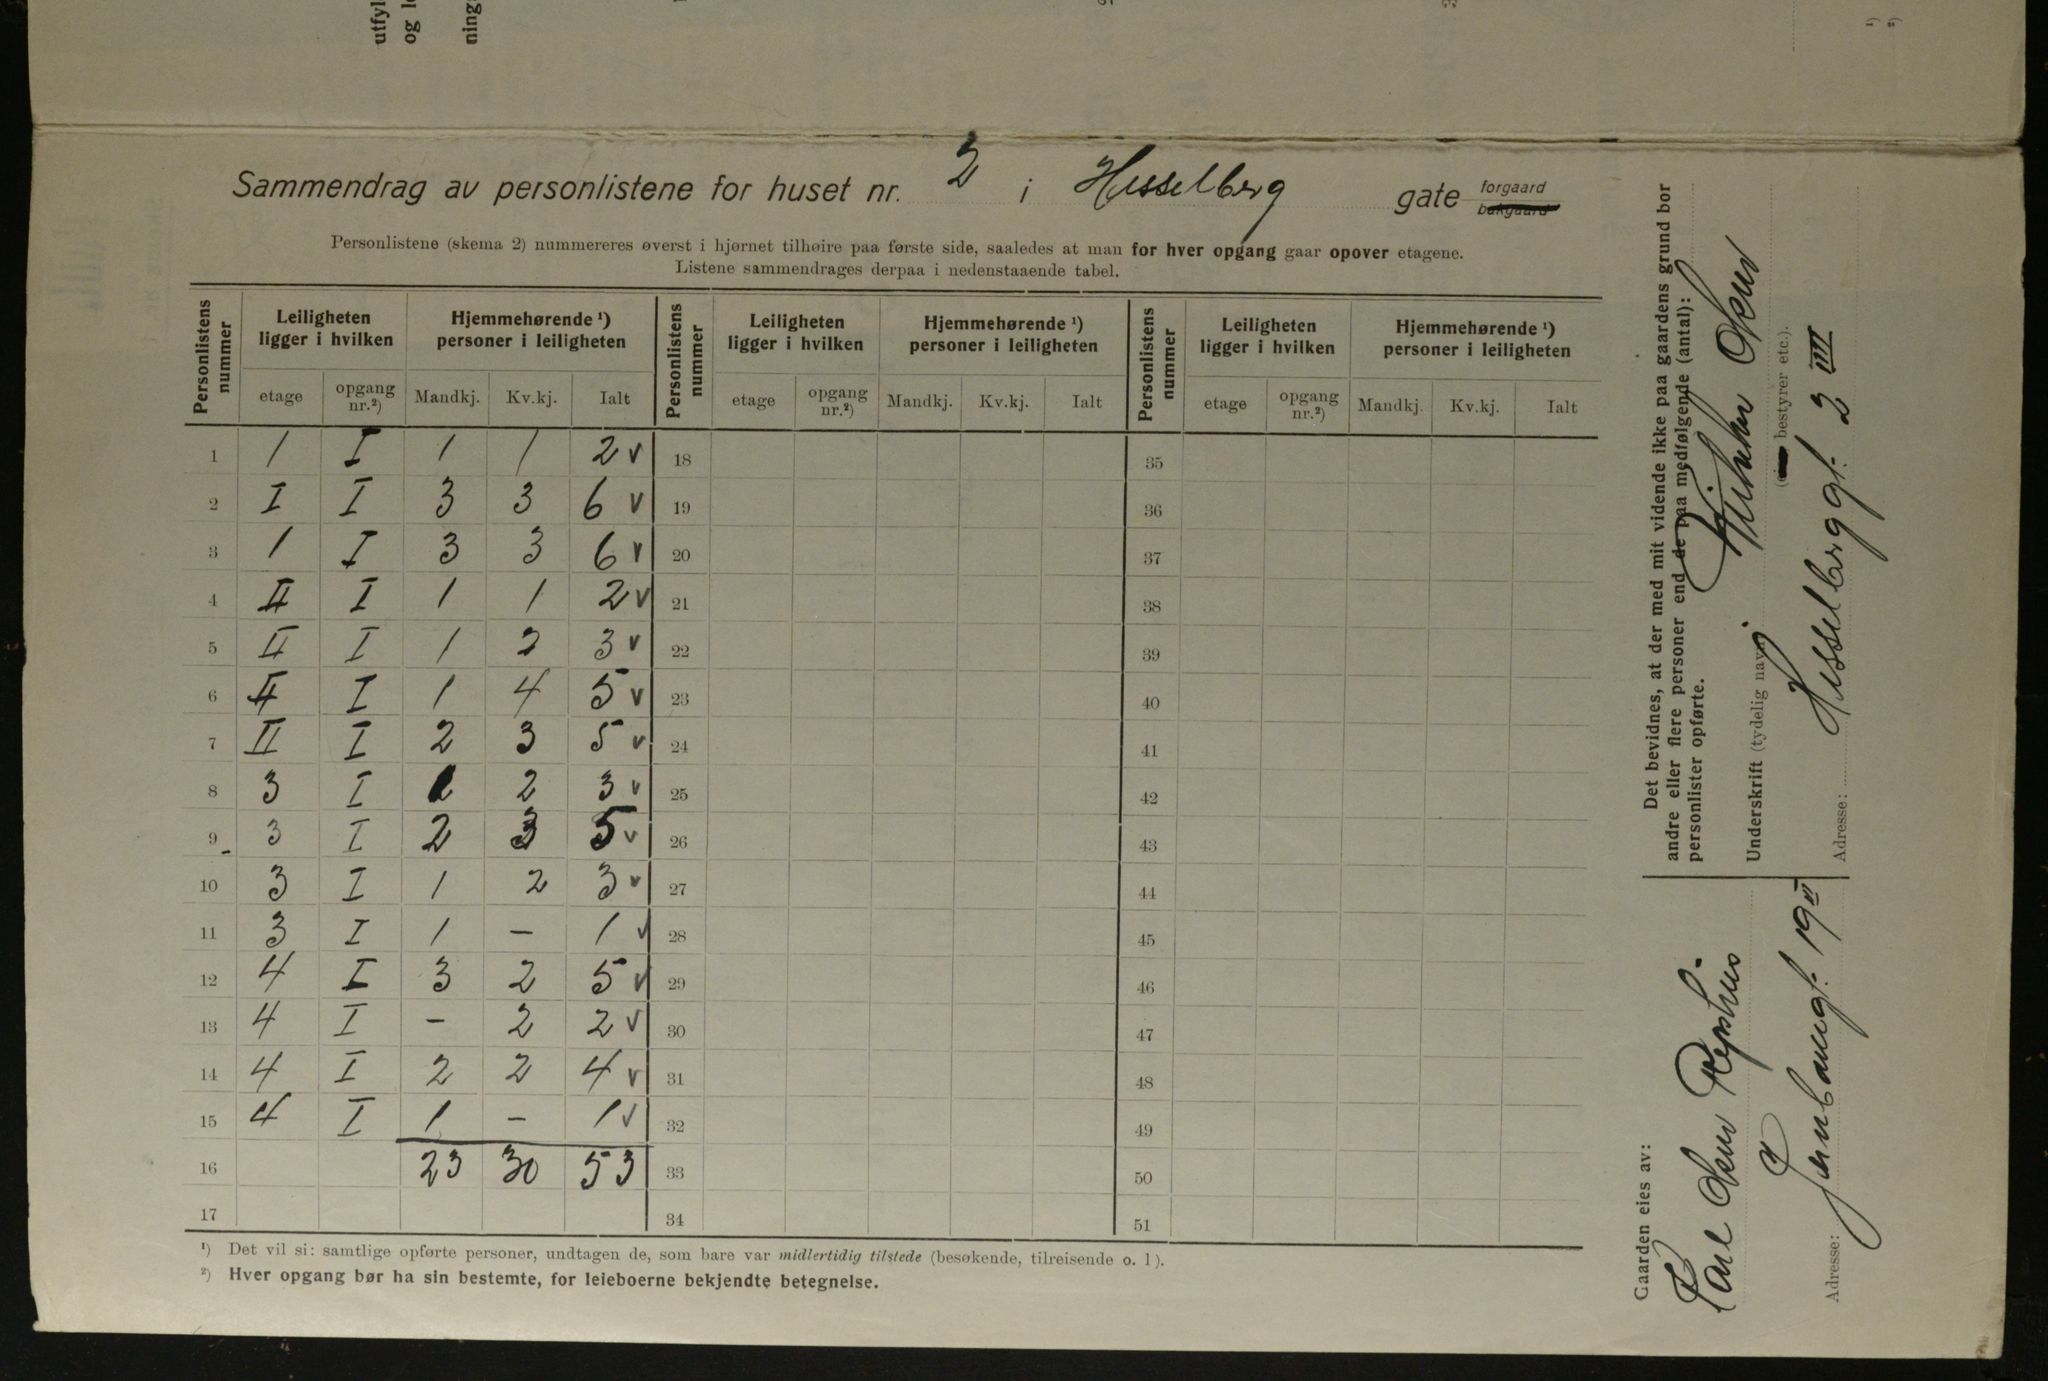 utfyl
og le
ning
Sammendrag av personlistene for huset nr. 2 i Hesselberg gate forgaard
bakgaard
Personlistene (skema 2) nummereres øverst i hjørnet tilhøire paa første side, saaledes at man for hver opgang gaar opover etagene.
Listene sammendrages derpaa i nedenstaaende tabel.
Personlistens nummer | Leiligheten ligger i hvilken | Hjemmehørende ¹) personer i leiligheten | Personlistens nummer | Leiligheten ligger i hvilken | Hjemmehørende ¹) personer i leiligheten | Personlistens nummer | Leiligheten ligger i hvilken | Hjemmehørende ¹) personer i leiligheten
etage | opgang nr.²) | Mandkj. | Kv.kj. | Ialt | etage | opgang nr.²) | Mandkj. | Kv.kj. | Ialt | etage | opgang nr.²) | Mandkj. | Kv.kj. | Ialt
1 | 1 | I | 1 | 1 | 2 v | 18 | 35
2 | I | I | 3 | 3 | 6 v | 19 | 36
3 | 1 | I | 3 | 3 | 6 v | 20 | 37
4 | II | I | 1 | 1 | 2 v | 21 | 38
5 | II | I | 1 | 2 | 3 v | 22 | 39
6 | II | I | 1 | 4 | 5 v | 23 | 40
7 | II | I | 2 | 3 | 5 v | 24 | 41
8 | 3 | I | 1 | 2 | 3 v | 25 | 42
9 | 3 | I | 2 | 3 | 5 v | 26 | 43
10 | 3 | I | 1 | 2 | 3 v | 27 | 44
11 | 3 | I | 1 | – | 1 v | 28 | 45
12 | 4 | I | 3 | 2 | 5 v | 29 | 46
13 | 4 | I | – | 2 | 2 v | 30 | 47
14 | 4 | I | 2 | 2 | 4 v | 31 | 48
15 | 4 | I | 1 | – | 1 v | 32 | 49
16 | 23 | 30 | 53 | 33 | 50
17 | 34 | 51
¹) Det vil si: samtlige opførte personer, undtagen de, som bare var midlertidig tilstede (besøkende, tilreisende o. l).
²) Hver opgang bør ha sin bestemte, for leieboerne bekjendte betegnelse.
Det bevidnes, at der med mit vidende ikke paa gaardens grund bor
andre eller flere personer end de paa medfølgende (antal):
personlister opførte.
Underskrift (tydelig navn)
bestyrer etc.).
Adresse: Hesselberggt. 2 IIII
Gaarden eies av:
Adresse: Jernbanegt. 19 II